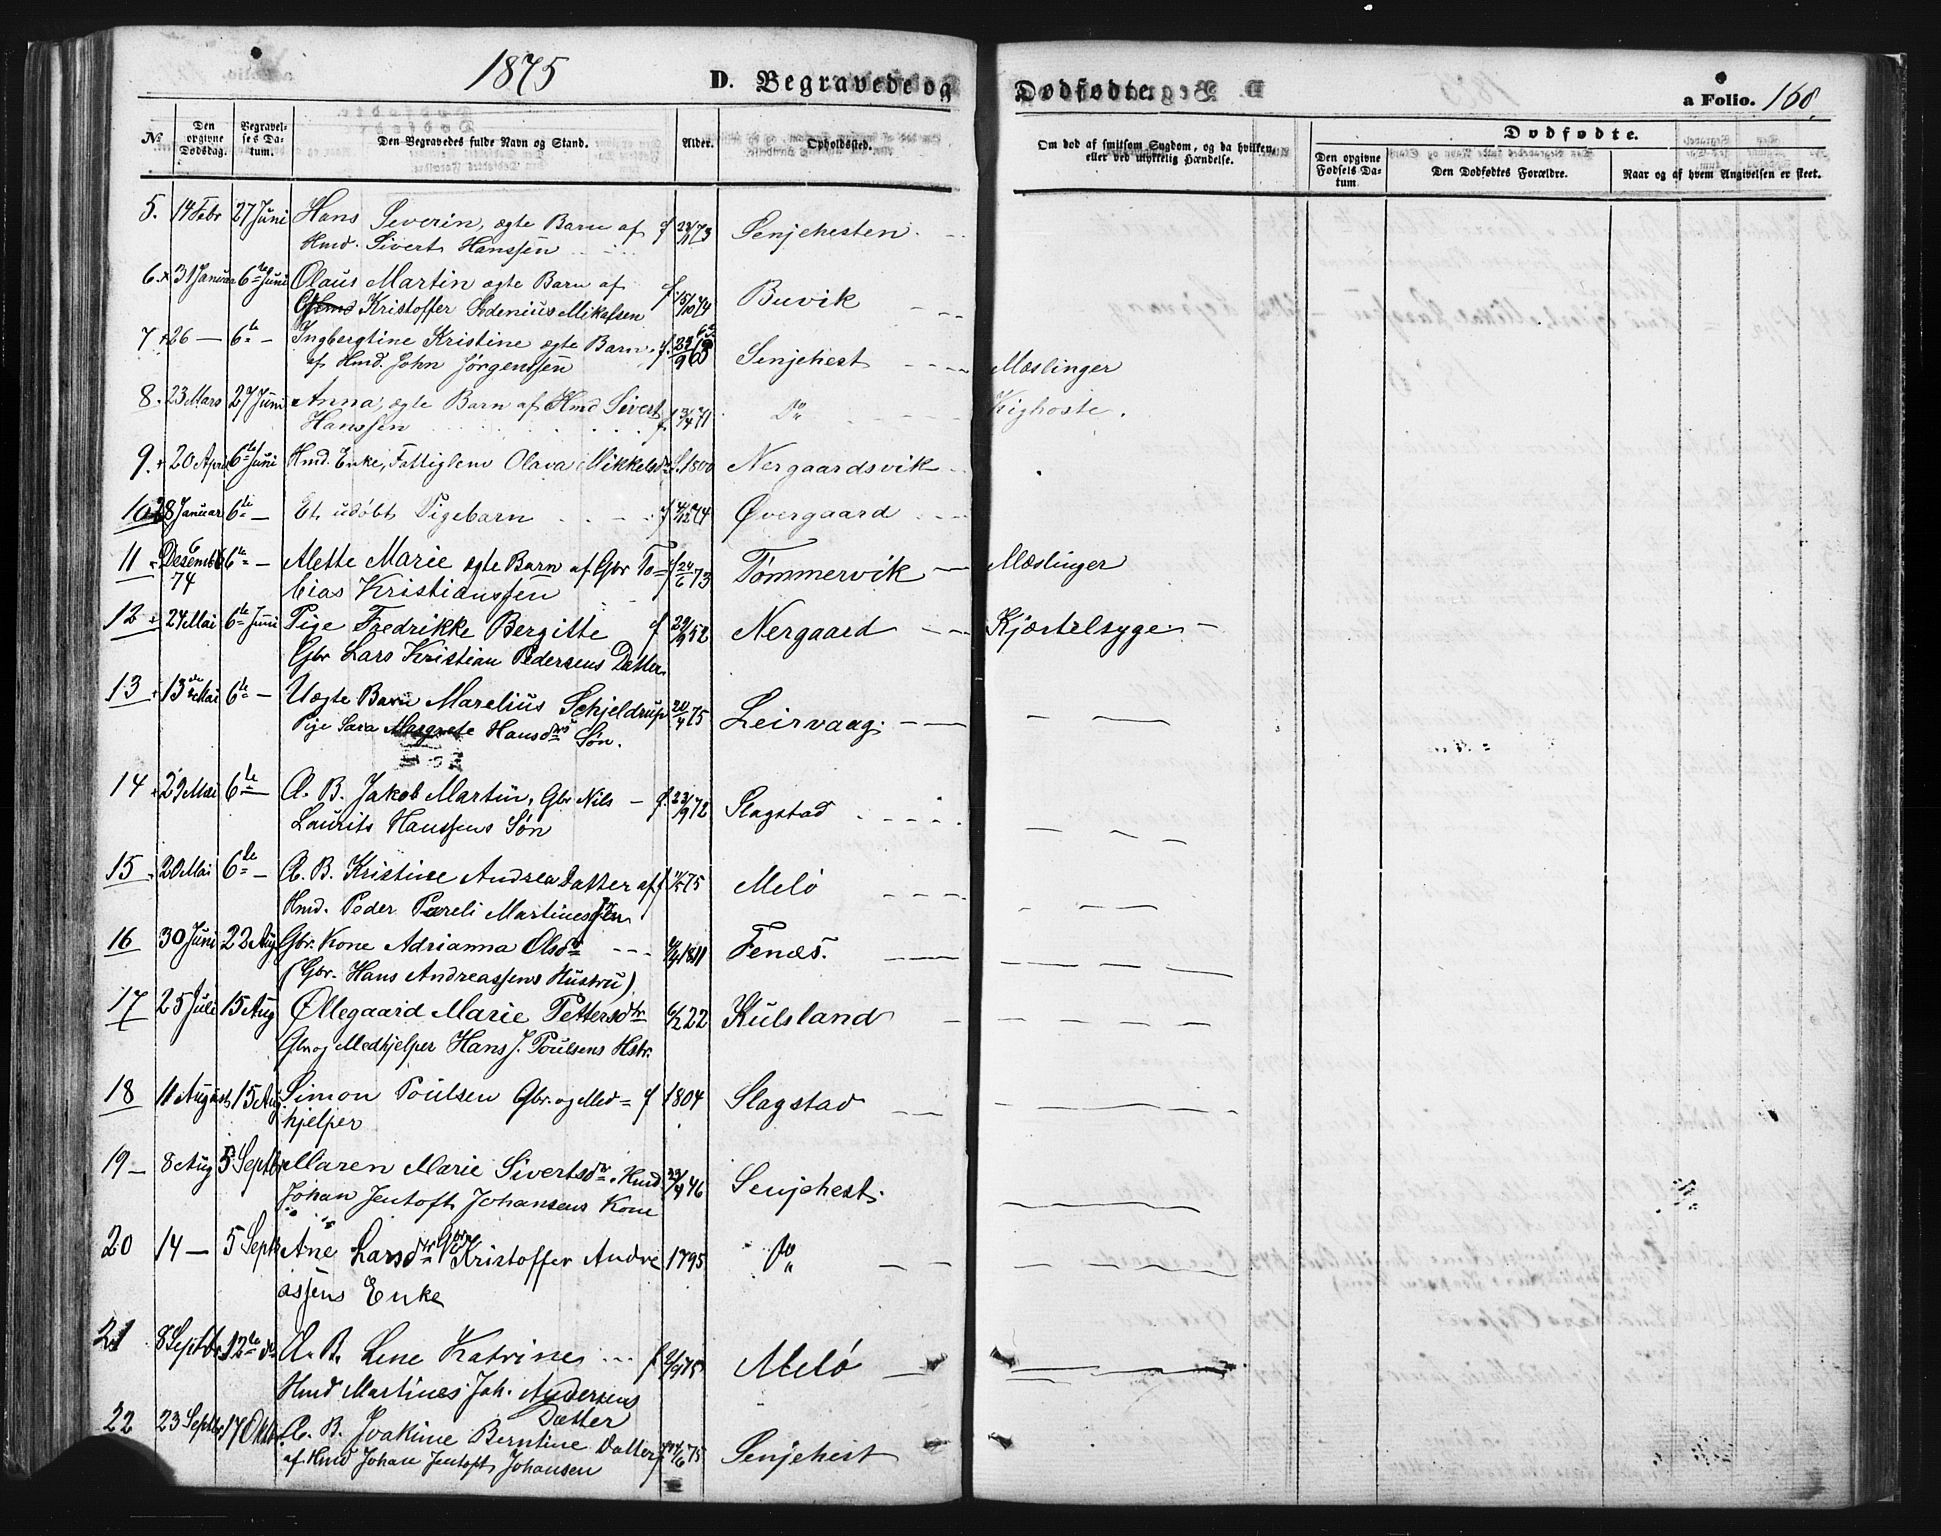 1875
D. Begravede og Dødfødte.
a Folio. 168.
No
Den opgivne Dødsdag.
Begravelses Datum.
Den Begravedes fulde Navn og Stand.
Alder.
Opholdssted.
Om død af smitsom Sygdom, og da hvilken, eller ved ulykkelig Hændelse.
Dødfødte.
Den opgivne Fødsels Datum
Den Dødfødtes Forældre.
Naar og af hvem Angivelsen er skeet.
5. 14 Febr 27 Juni Hans Severin, ægte Barn af f 73 Senjehesten
Hmd. Sivert Hanssen
6. 31 Januar 6te Juni Olaus Martin ægte Barn af f. 15/10 74 Buvik
Kristoffer Sedenius Mikalsen
7 26 — 6te — Ingbergtine Kristine ægte Barn f. Senjehest Mæslinger
af Hmd. John Jørgenssen
8. 23 Mars 27 Juni Anna, ægte Barn af Hmd Sivert f. 71 Do Kighoste.
Hanssen
9. 20 April 6te Juni Hmd. Enke, Fattiglem Olava Mikkelsdr f. 1800 Nergaardsvik
10 28 Januar 6te — Et udøbt Pigebarn f 12 74 Øvergaard
11 6 Desemb 6te — Alette Marie ægte Barn af Gbr To= f 24/6 73 Tømmervik Mæslinger
74 bias Kristianssen
12 24 Mai 6te Juni Pige Fredrikke Bergitte f 52 Nergaard Kjertelsyge
Gbr Lars Kristian Pedersens Datter
13 13de Mai 6te — Uægte Barn Marelius Schjeldrup 20/4 75 Leirvaag
Pige Sara Margrete Hansdrs Søn.
14 29 Mai 6te Æ. B. Jakob Martin, Gbr Nils — f. 23/9 72 Slagstad
Laurits Hanssens Søn
15 20 Mai 6te — Æ. B. Kristine Andrea Datter af f 75 Melö
Hmd. Peder Pareli Martinessen
16 30 Juni 22 Aug Gbr. Kone Adrianna Olsdr 1811 Fenæs.
(Gbr. Hans Andreassens Hustru).
17 25 Juli 15 Aug Øllegaard Marie Pettersdtr 22 Kulsland
Gbr og Medhjelper Hans J. Poulsens Hstr.
18 11 August 15 Aug. Simon Poulsen Gbr. og Med= f 1804 Slagstad
hjelper
19 — 8 Aug 5 Septbr Maren Marie Sivertsdr. Hmd. 46 Senjehest.
Johan Jentoft Johansens Kone
20 14 — 5 Septr Ane Larsdtr Gbr Kristoffer Andre 1795 Do
assens Enke
21 8 Septbr 12te do Æ. B. Line Katrine f 2/9 75 Melö
Hmd Martines Joh. Andersens
Datter
22 23 Septbr 17 Oktbr Æ. B. Joakime Berntine Datter f 75 Senjehest
af Hmd Johan Jentoft Johansen